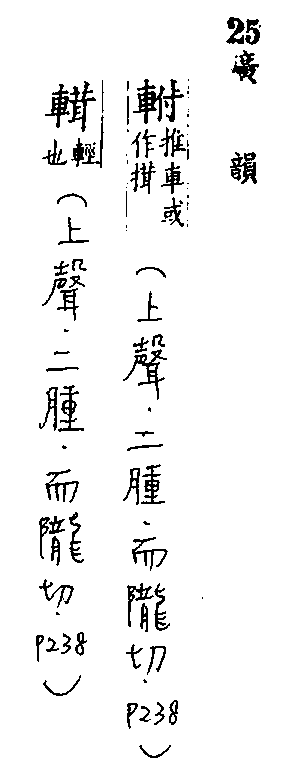 25 廣韻
軵 推車或
作搑
(上聲.二腫.而隴切.P238)
𨍷 輕
也
(上聲.二腫.而隴切.P238)